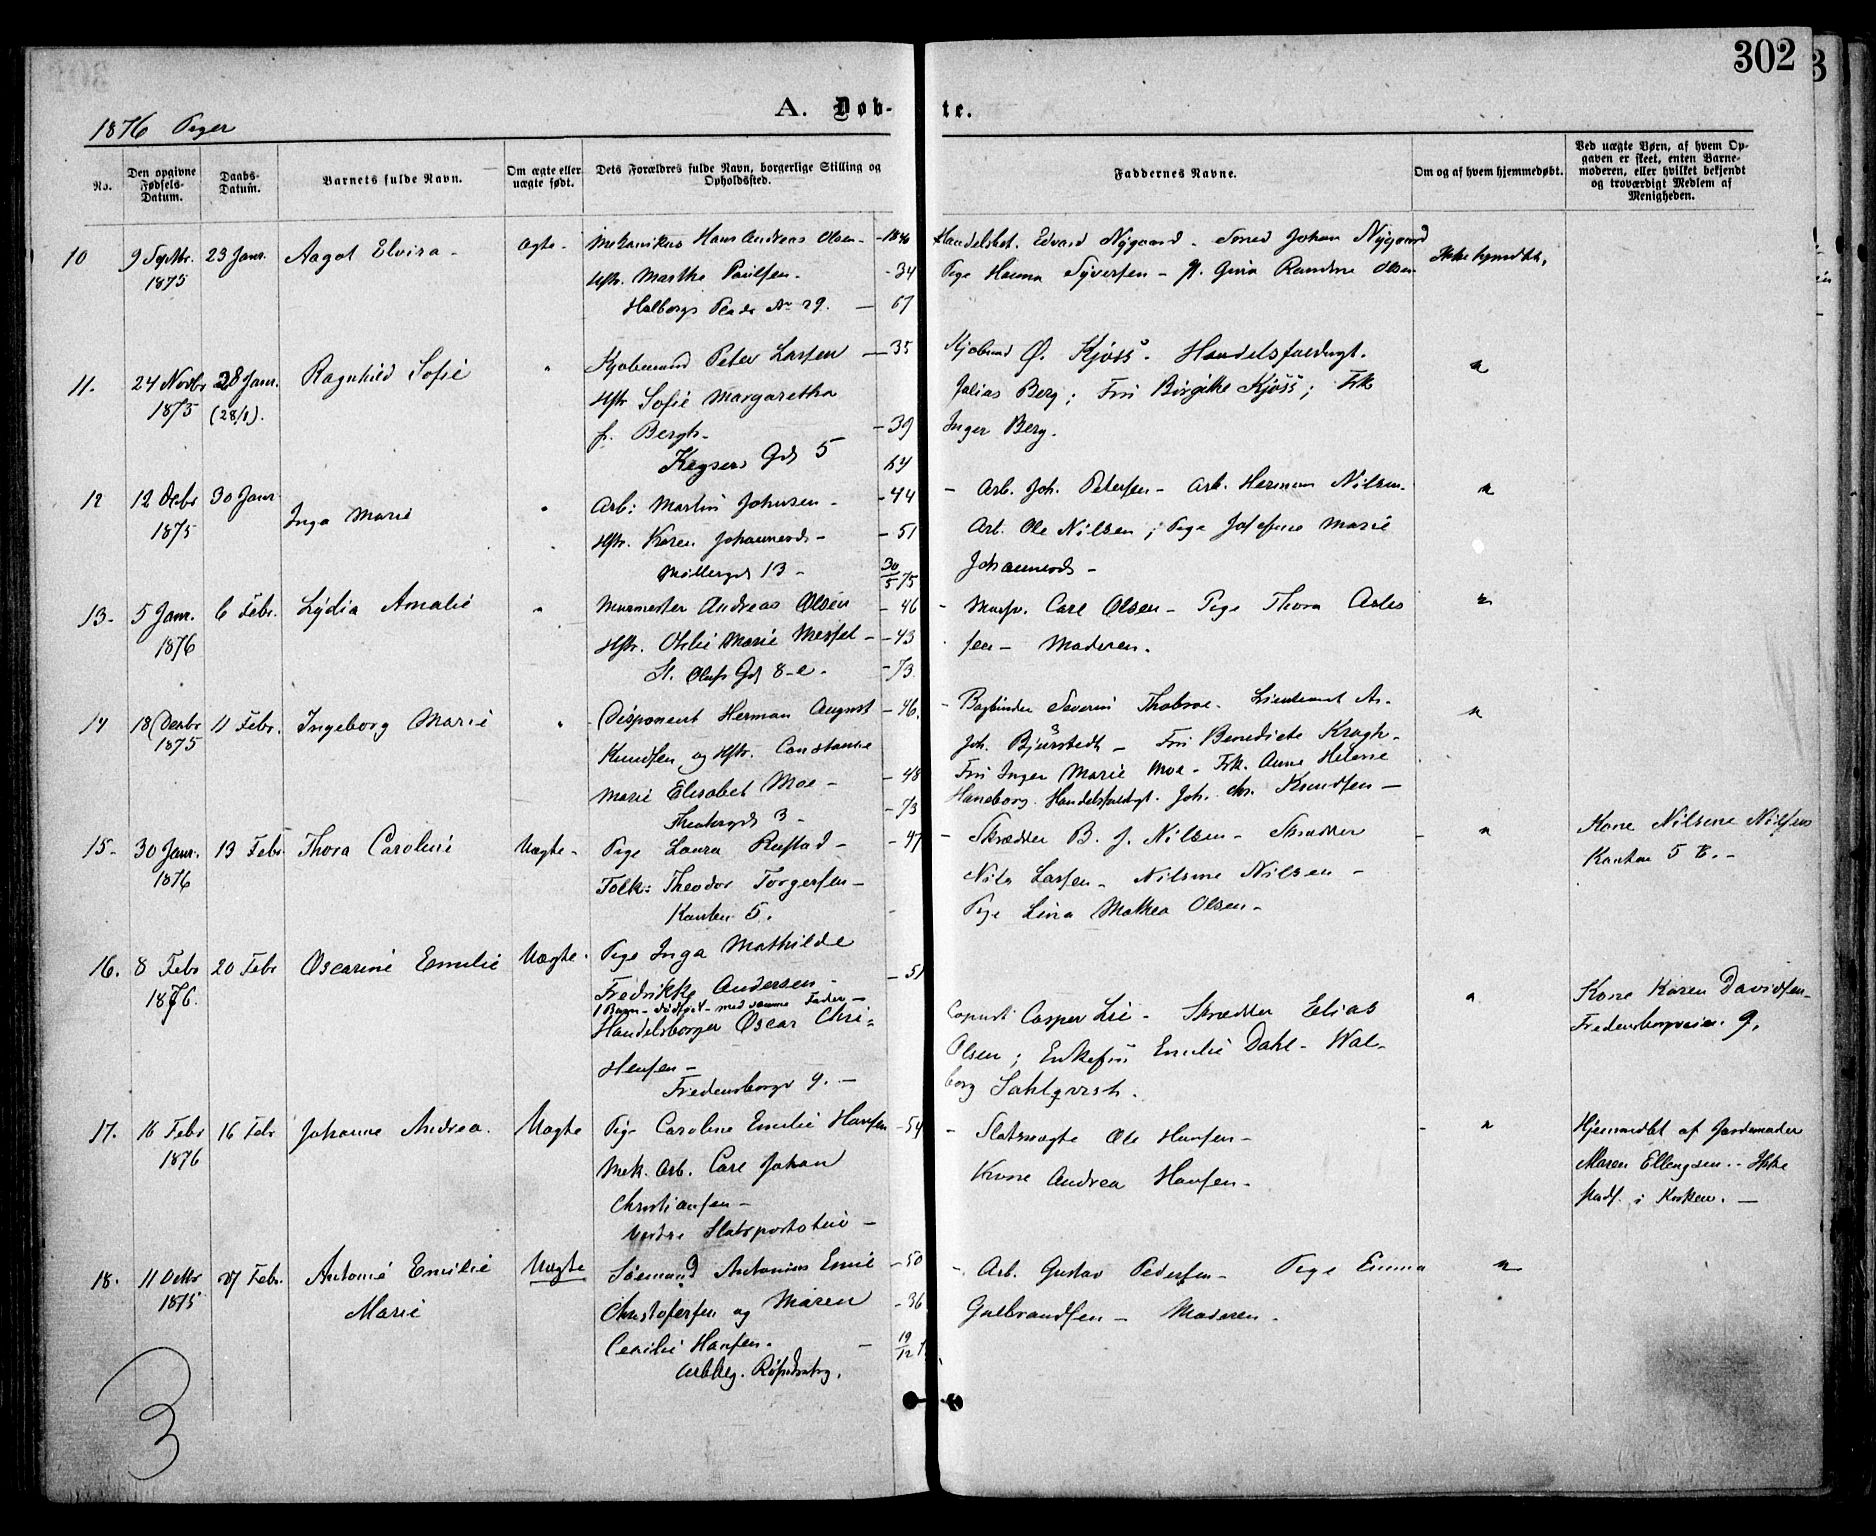 302
A. Døb-
te.
1876 Piger
No.
Den opgivne Fødsels-Datum.
Daabs-Datum.
Barnets fulde Navn.
Om ægte eller uægte født.
Dets Forældres fulde Navn, borgerlige Stilling og Opholdssted.
Faddernes Navne.
Om og af hvem hjemmedøbt.
Ved uægte Børn, af hvem Opgaven er skeet, enten Barnemoderen, eller hvilket bekjendt og troværdigt Medlem af Menigheden.
10 9 Septbr. 23 Janr. Aagot Elvira - Ægte - Mekanikus Hans Andreas Olsen - 1840 Handelsbet. Edvard Nygaard - Smed Johan Nygaard Ikke hjemdbt.
1875 Hstr. Marthe Paulsen - - 34 Pige Hanna Syversen - Gina Randine Olsen
Holbergs Plads No 29. - 67
11. 24 Novbr 28 Janr. Ragnhild Sofie " Kjøbmand Peter Larsen - 35 Kjøbmd Ø. Kjøss. Handelsfuldmgt. "
1875 (28/1). Hstr Sofie Margaretha Julius Berg; Fru Birgitte Kjøss; Frk
f. Bergh - - 39 Inger Berg.
Keysers Gd 5 64
12 12 Decbr 30 Janr Inga Marie " Arb: Martin Johnsen - - 44 - Arb. Joh. Petersen - Arb. Herman Nilsen - "
1875 Hstr. Karen Johannesd - - 51 Arb. Ole Nilsen; Pige Josefine Marie
Møllergd 13 - 30/5 75 Johannesd -
13 - 5 Janr. 6 Febr. Lydia Amalie " Murmester Andreas Olsen - 46 - Mursv. Carl Olsen - Pige Thora Carls "
1876 Hstr. Otilie Marie - 43 sen - Moderen.
St. Olufs Gd 8-e. - 73
14 18 Decbr 11 Febr. Ingeborg Marie " Disponent Herman August - 46. - Bogbinder Severin - Lieutenant A. "
1875 Knudsen og Hstr. Constance Joh. Bjørstedt - Fru Benedicte Kragh -
Marie Elisabet Moe - - 48 Fru Inger Marie Moe - Frk. Anne Helene
Theatergd 3 - - 73 Haneborg. Handelsfuldmgt. Joh. Chr. Knudsen -
15 - 30 Janr. 13 Febr Thora Caroline Uægte - Pige Laura Rustad - - 47 - Skrædder B. J. Nilsen - Skrædder - " Kone Nilsine Nilsen
1876 Tolk: Theodor Torgersen - Nils Larsen - Nilsine Nilsen - 5 B. -
5. Pige Lina Mathea Olsen -
16. 8 Febr 20 Febr Oscarine Emilie Uægte - Pige Inga Mathilde
1876. Fredrikke Andersen - - 51
1 Barn - dødfødt - med samme Fader -
Handelsborger Oscar Chri= Casper Lie - Skrædder Elias " Kone Karen Davidsen -
Hensen - Olsen; Enkefru Emilie Dahl - Wal- Fredensborgveien 9.
Fredensborgv 9. - borg Sahlqvist.
17. 16 Febr 16 Febr Johanne Andrea. Uægte Pige Caroline Emilie Hansen - 54 - Slotsvægte Ole Hansen - - " Hjemmedbt af Jordemoder
1876 Mek. Arb. Carl Johan Kone Andrea Hansen - Maren Ellengsen - Ikke
Christiansen - stadf. i Kirken. -
Slotsportstuen -
18. 11 Octbr 27 Febr. Antonie Emilie Uægte Sømand Antonius Emil - 50 - Arb. Gustav Pedersen - Pige Emma "
1875 Marie Christofersen og Maren - 36 Gulbrandsen - Moderen.
Cecilie Hansen. - 19/12
3